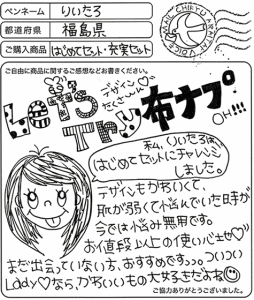 ペンネーム りいたろ
都道府県 福島県
ご購入商品 はじめてセット・充実セット
ご自由に商品に関するご感想などお書きください。
デザイン♡
たくさんっ♪
Let's Try 布ナプ!
OH!!!
私、りいたろは、
はじめてセットにチャレンジ
しました。
デザインもかわいくて、
肌が弱くて悩んでいた時が
今では悩み無用です。
お値段以上の使い心地♡
まだ出会っていない方、おすすめです。。。ついつい
Lady♡なら、かわいいもの大好きだよね♡
ご協力ありがとうございました。